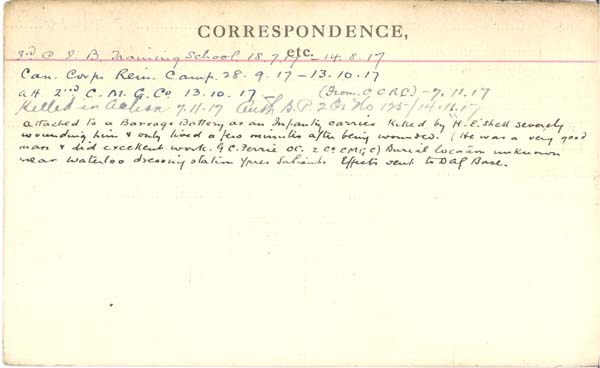 CORRESPONDENCE,
etc.
3rd C I B. Training School. 18.7.17 – 14.8.17
Can. Corps Rein. Camp. 28.9.17 – 13.10.17
att 2nd C. M. G. Co 13.10.17 (From C C R C) – 7.11.17
Killed in Action 7.11.17 Auth B.P. 2 Os No 125/14.11.17
Attached to a Barrage Battery as an Infantry carrier Killed by "H.E. Shell severely
wounding him & only lived a few minutes after being wounded. (He was a very good
man & did excellent work. G.C. Ferrie OC. 2 Co CMGC) Burial location unknown
near Waterloo dressing station Ypres Salient. Effects sent to DAG Base.